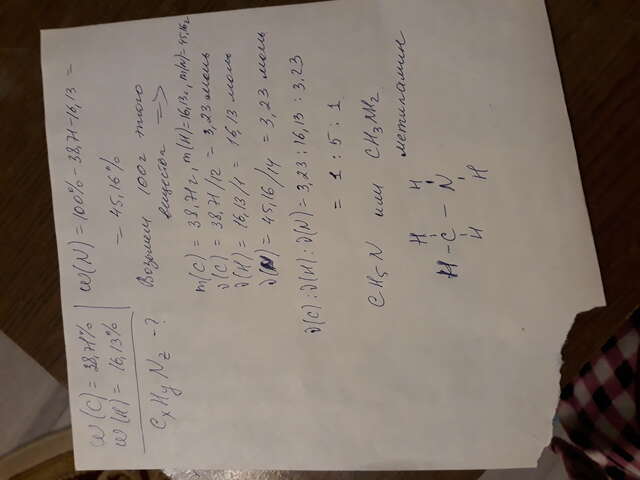 ω(C) = 38,71%
ω(H) = 16,13%
CxHyNz - ?
ω(N) = 100% - 38,71 - 16,13 =
= 45,16%
Возьмем 100г такого
вещества =>
m(C) = 38,71г, m(H)=16,13г, m(N)=45,16г
ν(C) = 38,71/12 = 3,23 моль
ν(H) = 16,13/1 = 16,13 моль
ν(N) = 45,16/14 = 3,23 моль
ν(C) : ν(H) : ν(N) = 3,23 : 16,13 : 3,23
= 1 : 5 : 1
CH5N или CH3NH2
метиламин
H H
H - C - N
H H